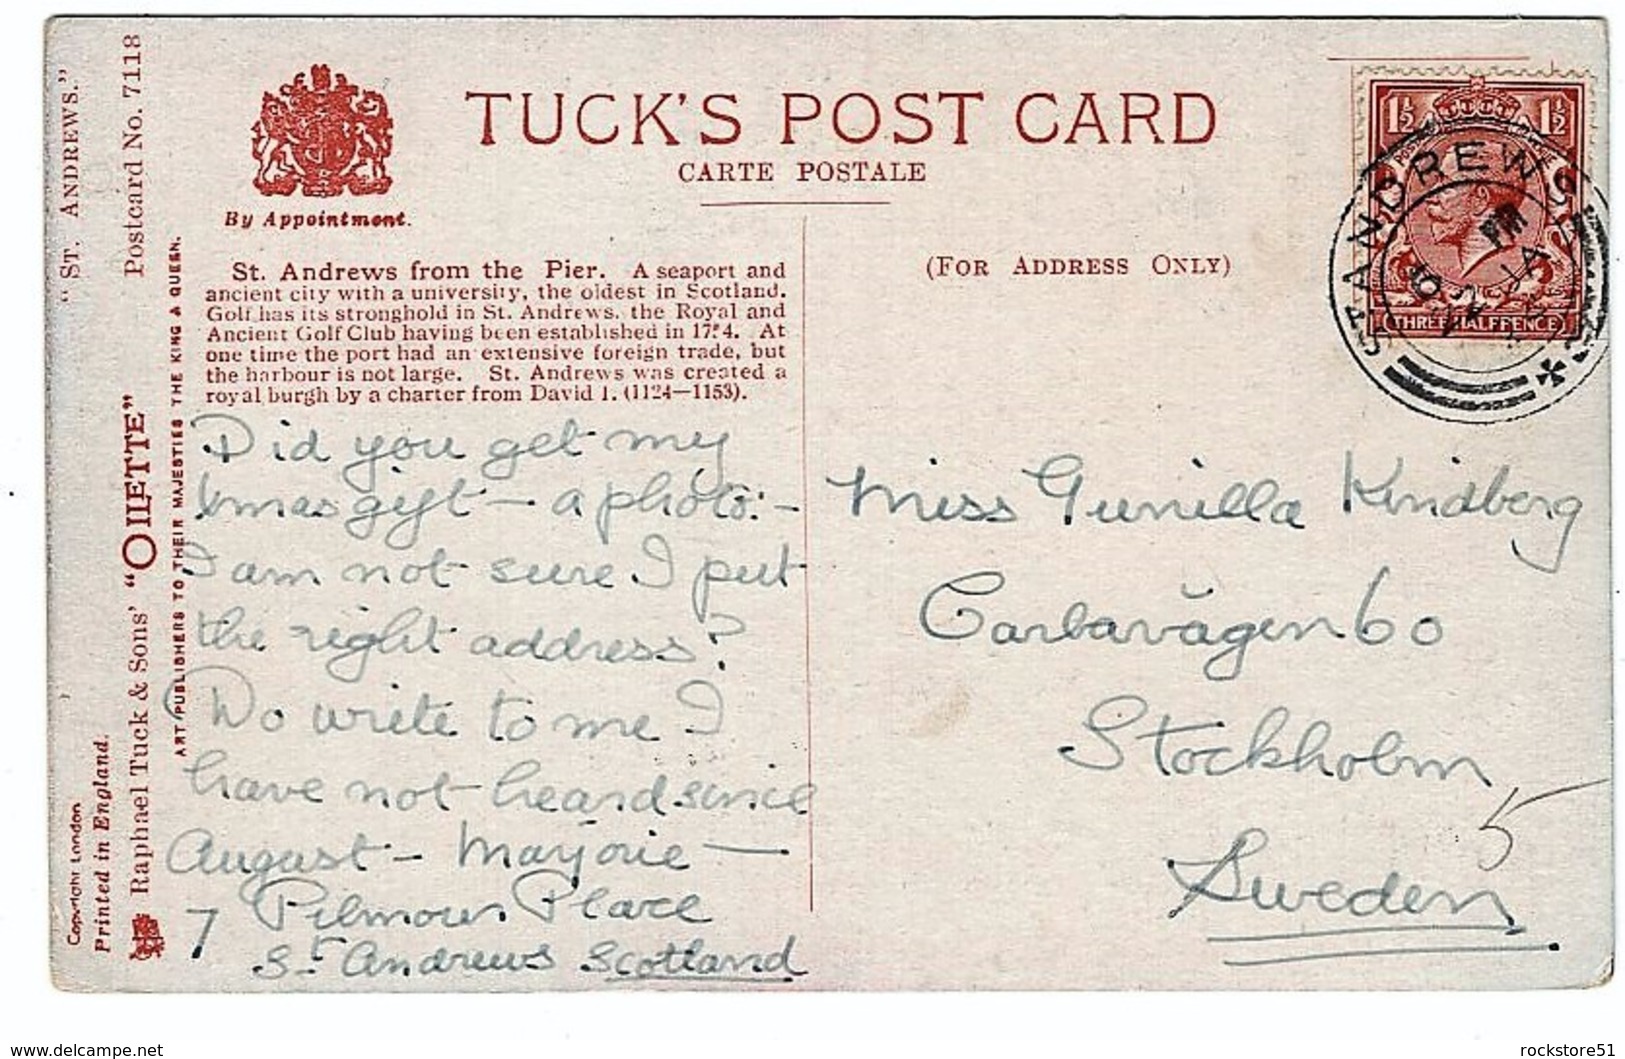 "ST. ANDREWS."
Postcard No. 7118
By Appointment.
TUCK'S POST CARD
CARTE POSTALE
(FOR ADDRESS ONLY)
St. Andrews from the Pier. A seaport and
ancient city with a university, the oldest in Scotland.
Golf has its stronghold in St. Andrews, the Royal and
Ancient Golf Club having been established in 1754. At
one time the port had an extensive foreign trade, but
the harbour is not large. St. Andrews was created a
royal burgh by a charter from David I. (1124—1153).
Did you get my
Xmas gift — a photo: —
I am not sure I put
the right address?
Do write to me I
have not heard since
August — Marjorie —
7 Pilmour Place
St. Andrews Scotland
Miss Gunilla Kindberg
Carlavägen 60
Stockholm
Sweden
5
1½ 1½
THREE HALFPENCE
ST ANDREWS
PM
Raphael Tuck & Sons' "OILETTE"
ART PUBLISHERS TO THEIR MAJESTIES THE KING & QUEEN.
Copyright London
Printed in England.
www.delcampe.net
rockstore51